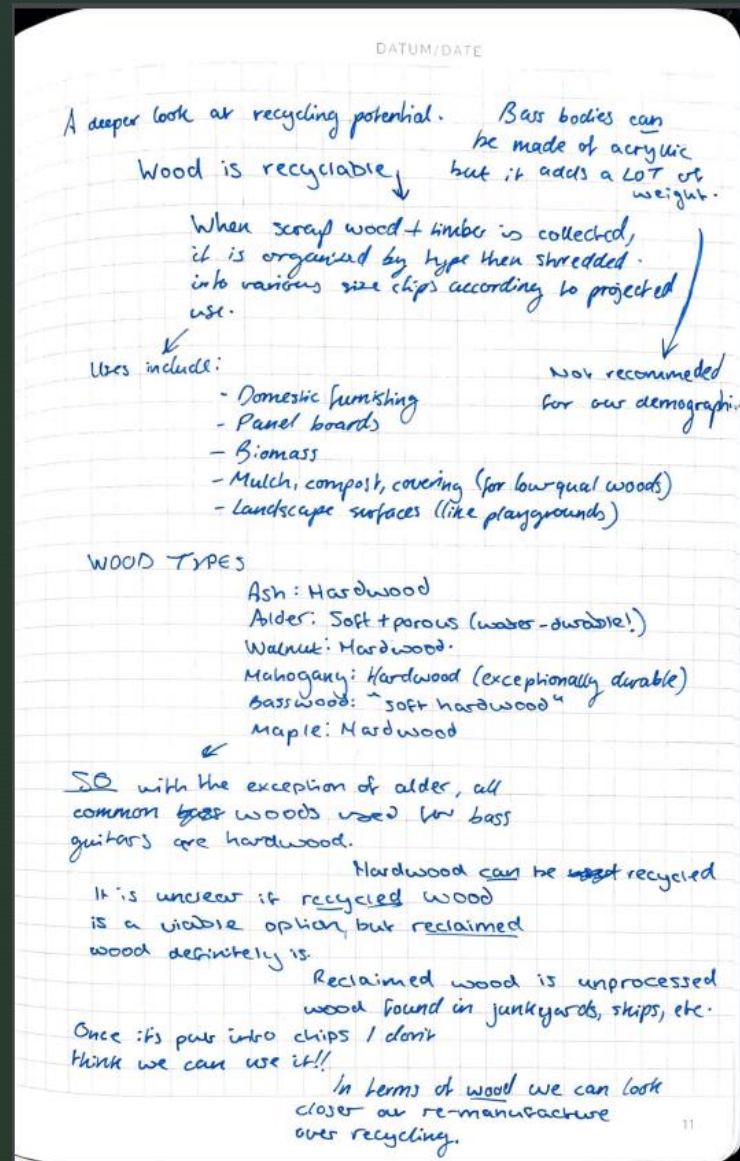 DATUM/DATE
A deeper look at recycling potential.
Bass bodies can
be made of acryllic
but it adds a LOT of
weight.
Wood is recyclable,
When scrap wood + timber is collected,
it is organised by type then shredded.
into various size chips according to projected
use.
Not recommeded
for our demographi
Uses include:
- Domestic furnishing
- Panel boards
- Biomass
- Mulch, compost, covering (for low qual woods)
- Landscape surfaces (like playgrounds)
WOOD TYPES
Ash: Hardwood
Alder: Soft + porous (water-durable!)
Walnut: Hardwood.
Mahogany: Hardwood (exceptionally durable)
Basswood: "soft hardwood"
Maple: Hardwood
SO with the exception of alder, all
common woods used for bass
guitars are hardwood.
Hardwood can be recycled
It is unclear if recycled wood
is a viable option, but reclaimed
wood definitely is.
Reclaimed wood is unprocessed
wood found in junkyards, skips, etc.
Once its put into chips I don't
think we can use it!!
In terms of wood we can look
closer at re-manufacture
over recycling.
11